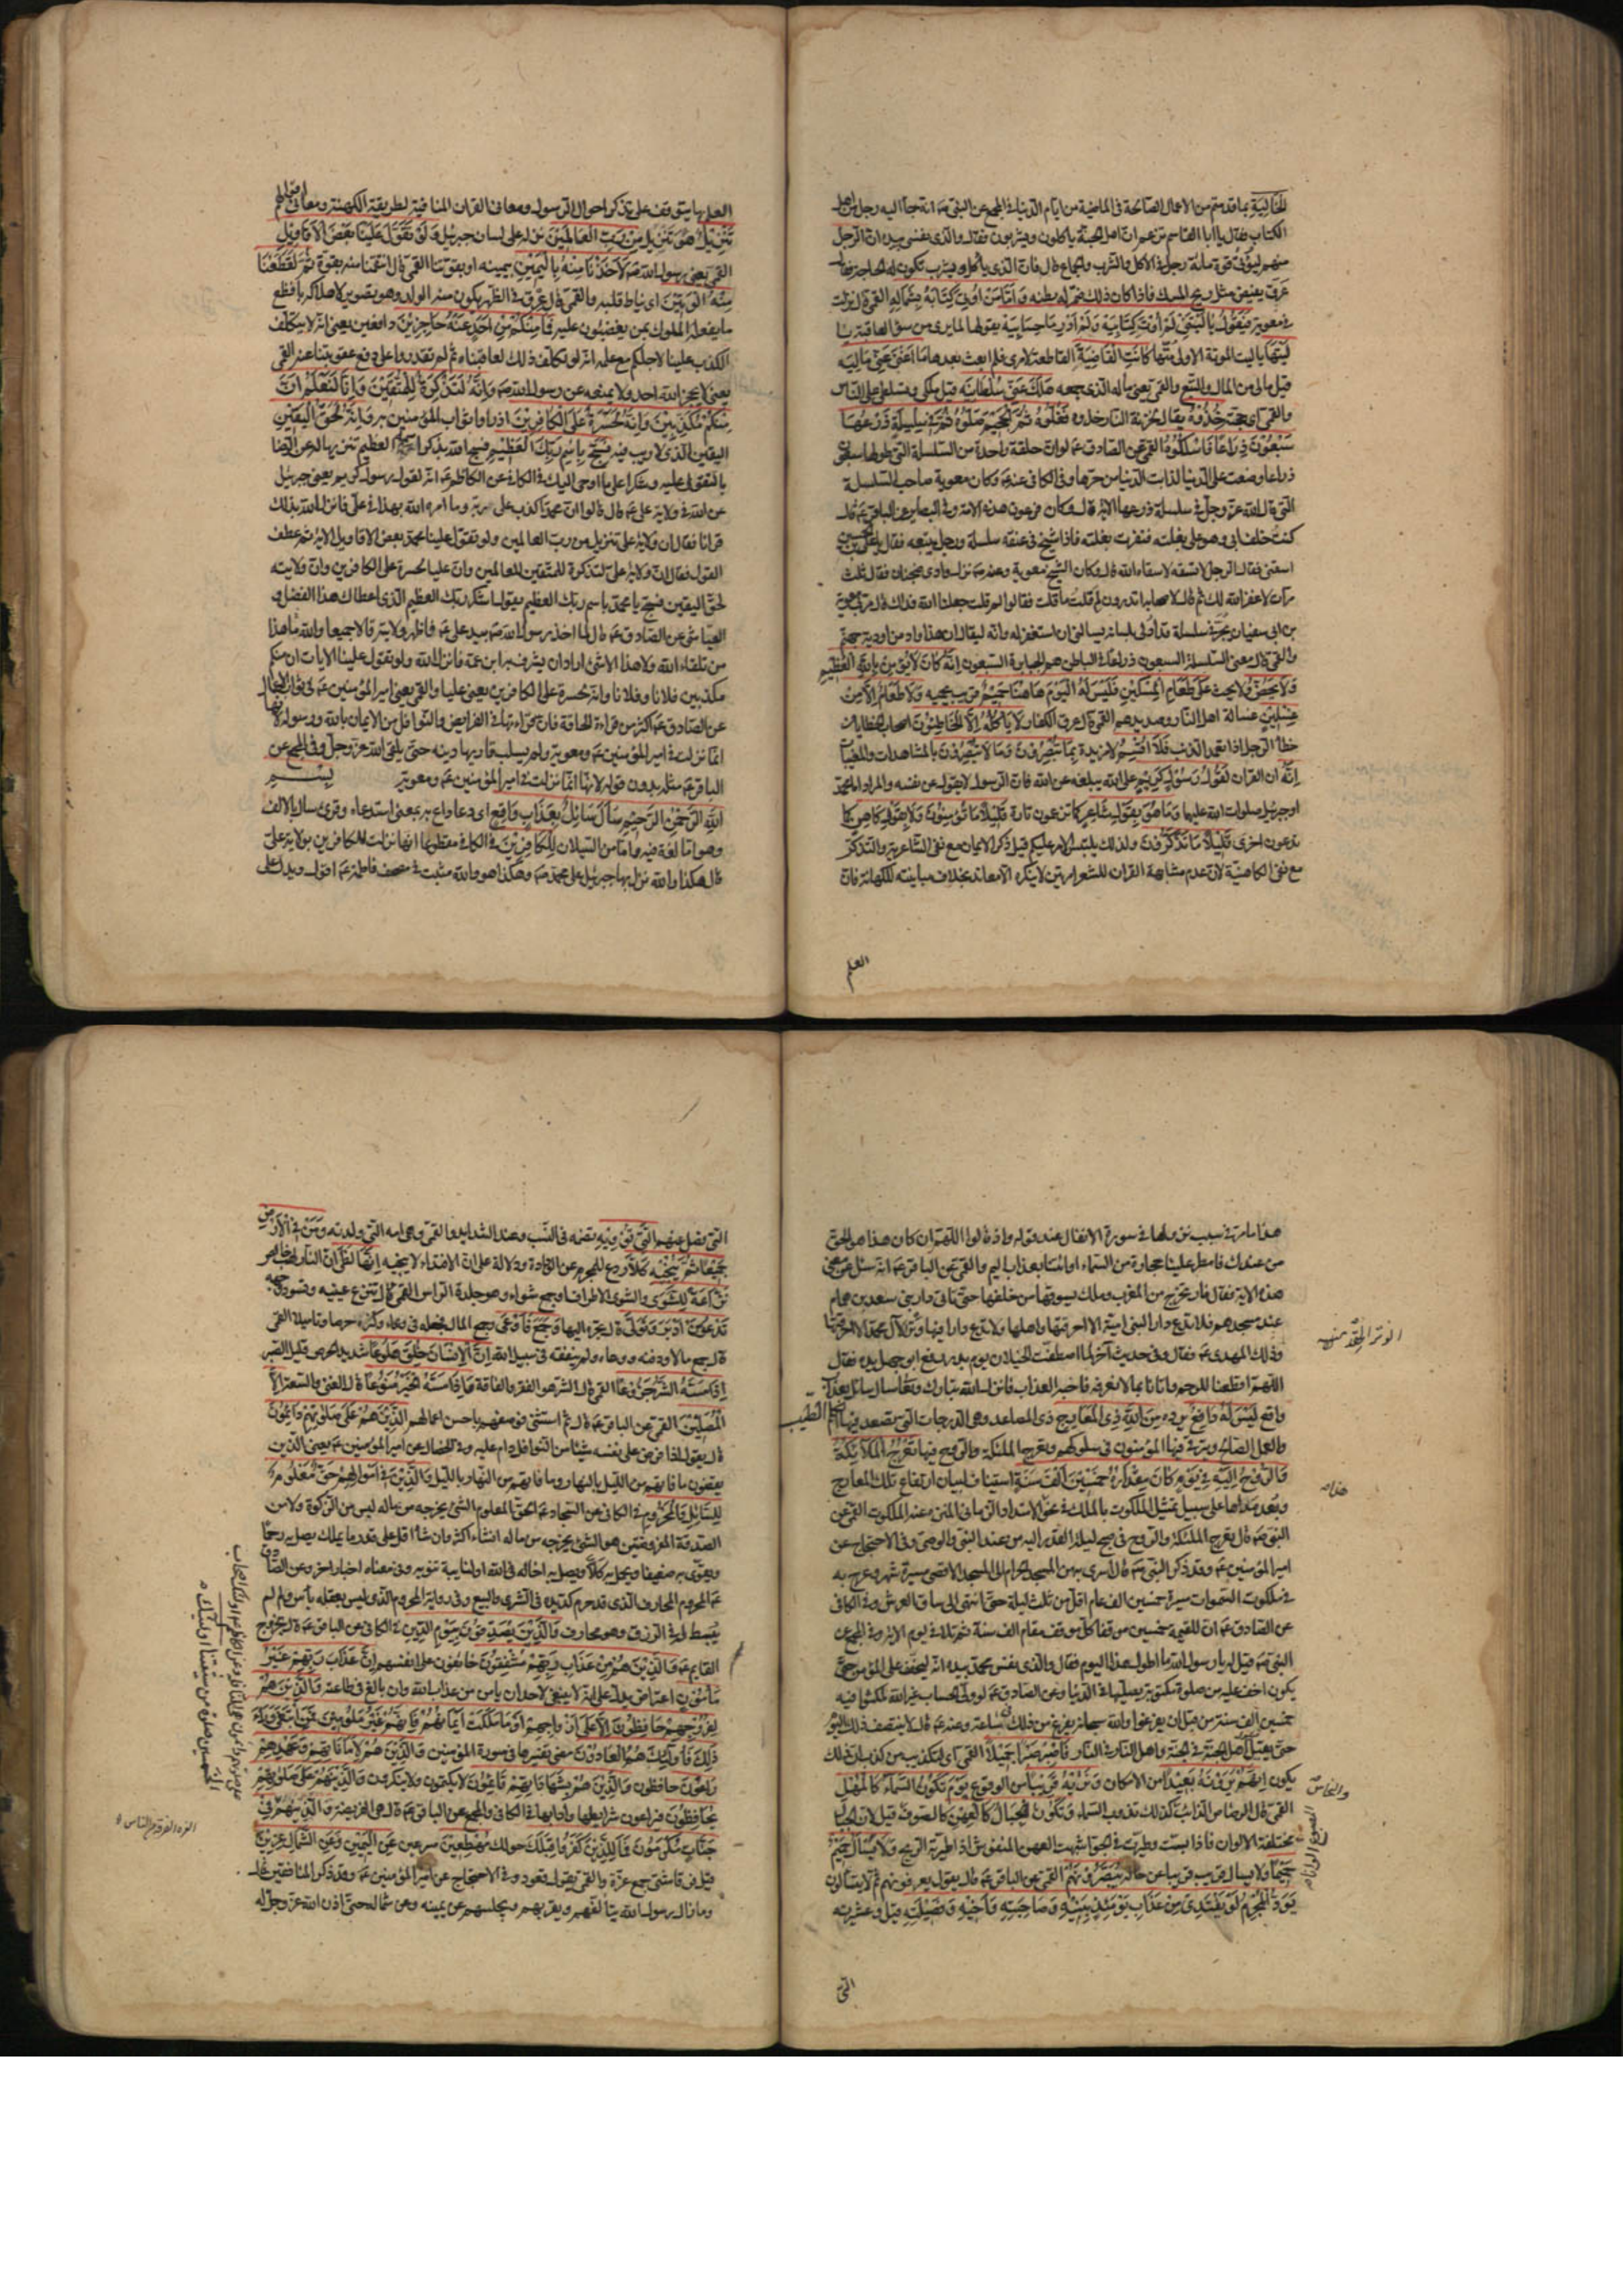 الخالية بما قدمتم من الاعمال الصالحة في الماضية من ايام الدنيا في المجمع عن النبي صم انه جاء اليه رجل من اهل
الكتاب فقال يا ابا القاسم تزعم ان اهل الجنة ياكلون ويشربون فقال والذي نفسي بيده ان الرجل
منهم ليؤتى قوة مائة رجل في الاكل والشرب والجماع قال فان الذي ياكل ويشرب تكون له الحاجة فقال
عرق يفيض مثل ريح المسك فاذا كان ذلك ضمر له بطنه وَاَمّا مَنْ اُوتِيَ كِتابَهُ بِشِمالِهِ القمي قال نزلت
في معوية فَيَقُولُ يا لَيْتَني لَمْ اُوتَ كِتابِيَهْ وَلَمْ اَدْرِ ما حِسابِيَهْ يقولها لما يرى من سوء العاقبة يا
لَيْتَها يا ليت الموتة الاولى مُتّها كانَتِ القاضِيَةَ القاطعة لامري فلم ابعث بعدها ما اَغْنى عَنّي مالِيَهْ
قيل مالي من المال والتبع والقمي يعني ماله الذي جمعه هَلَكَ عَنّي سُلْطانِيَهْ قيل ملكي وتسلطي على الناس
والقمي اي حجته خُذُوهُ يقال لخزنة النار خذوه فَغُلُّوهُ ثُمَّ الجَحيمَ صَلُّوهُ ثُمَّ في سِلْسِلَةٍ ذَرْعُها
سَبْعُونَ ذِراعًا فَاسْلُكُوهُ القمي عن الصادق عم لو ان حلقة واحدة من السلسلة التي طولها سبعون
ذراعا وضعت على الدنيا لذابت الدنيا من حرها وفي الكافي عنه عم وكان معوية صاحب السلسلة
التي قال الله عز وجل في سلسلة ذرعها الاية قال وكان فرعون هذه الامة وفي البصاير عن الباقر عم قال
كنت خلف ابي وهو على بغلته فنفرت بغلته فاذا شيخ في عنقه سلسلة ورجل يتبعه فقال يا علي بن الحسين
اسقني فقال الرجل لا تسقه لا سقاه الله قال وكان الشيخ معوية وعنه عم نزل وادي ضجنان فقال ثلث
مرات لا غفر الله لك ثم قال لاصحابه اتدرون لم قلت ما قلت فقالوا لم قلت جعلنا الله فداك قال مر بي معوية
بن ابي سفيان يجر في سلسلة قد ادلى لسانه يسالني ان استغفر له وانه ليقال ان هذا واد من اودية جهنم
والقمي قال معنى السلسلة السبعون ذراعا في الباطن هم الجبابرة السبعون اِنَّهُ كانَ لا يُؤْمِنُ بِاللهِ العَظيمِ
وَلا يَحُضُّ وَلا يحث عَلى طَعامِ المِسْكينِ فَلَيْسَ لَهُ اليَوْمَ هاهُنا حَميمٌ قريب يحميه وَلا طَعامٌ اِلّا مِنْ
غِسْلينٍ غسالة اهل النار وصديدهم القمي قال عرق الكفار لا يَاْكُلُهُ اِلَّا الخاطِئُونَ اصحاب الخطايا من
خطأ الرجل اذا تعمد الذنب فَلا اُقْسِمُ لا مزيدة بِما تُبْصِرُونَ وَما لا تُبْصِرُونَ بالمشاهدات والمغيبات
اِنَّهُ ان القران لَقَوْلُ رَسُولٍ كَريمٍ على الله يبلغه عن الله فان الرسول لا يقول عن نفسه والمراد اما محمد
او جبريل صلوات الله عليهما وَما هُوَ بِقَوْلِ شاعِرٍ كما تزعمون تارة قَليلًا ما تُؤْمِنُونَ وَلا بِقَوْلِ كاهِنٍ كما
تدعون اخرى قَليلًا ما تَذَكَّرُونَ ولذلك يلتبس الامر عليكم قيل ذكر الايمان مع نفي الشاعرية والتذكر
مع نفي الكاهنية لان عدم مشابهة القران للشعر امر بين لا ينكره الا معاند بخلاف مباينته للكهانة فان
العلم
العلم بها يتوقف على تذكر احوال الرسول ومعاني القران المنافية لطريقة الكهنة ومعاني اقوالهم
تَنْزيلٌ هو تنزيل مِنْ رَبِّ العالَمينَ نزله على لسان جبريل وَلَوْ تَقَوَّلَ عَلَيْنا بَعْضَ الاَقاويلِ
القمي يعني رسول الله صم لَاَخَذْنا مِنْهُ بِاليَمينِ بيمينه او بقوتنا القمي قال انتقمنا منه بقوة ثُمَّ لَقَطَعْنا
مِنْهُ الوَتينَ اي نياط قلبه والقمي قال عرق في الظهر يكون منه الولد وهو تصوير لاهلاكه بافظع
ما يفعله الملوك بمن يغضبون عليه فَما مِنْكُمْ مِنْ اَحَدٍ عَنْهُ حاجِزينَ دافعين يعني انه لا يتكلف
الكذب علينا لاجلكم مع علمه انه لو تكلف ذلك لعاقبناه ثم لم تقدروا على دفع عقوبتنا عنه القمي
يعني لا يحجز الله احد ولا يمنعه عن رسول الله صم وَاِنَّهُ لَتَذْكِرَةٌ لِلْمُتَّقينَ وَاِنّا لَنَعْلَمُ اَنَّ
مِنْكُمْ مُكَذِّبينَ وَاِنَّهُ لَحَسْرَةٌ عَلَى الكافِرينَ اذا راوا ثواب المؤمنين به وَاِنَّهُ لَحَقُّ اليَقينِ
اليقين الذي لا ريب فيه فَسَبِّحْ بِاسْمِ رَبِّكَ العَظيمِ فسبح الله بذكر اسمه العظيم تنزيها له عن الرضا
بالتقول عليه وشكرا على ما اوحى اليك في الكافي عن الكاظم عم انه لقول رسول كريم يعني جبريل
عن الله في ولاية علي عم قال قالوا ان محمدا كذب على ربه وما امره الله بهذا في علي فانزل الله بذلك
قرانا فقال ان ولاية علي تنزيل من رب العالمين ولو تقول علينا محمد بعض الاقاويل الاية ثم عطف
القول فقال ان ولاية علي لتذكرة للمتقين للعالمين وان عليا لحسرة على الكافرين وان ولايته
لحق اليقين فسبح يا محمد باسم ربك العظيم يقول اشكر ربك العظيم الذي اعطاك هذا الفضل و
العياشي عن الصادق عم قال لما اخذ رسول الله صم بيد علي عم فاظهر ولايته قالا جميعا والله ما هذا
من تلقاء الله ولا هذا الا شئ اراد ان يشرف به ابن عمه فانزل الله ولو تقول علينا الايات ان منكم
مكذبين فلانا وفلانا وانه لحسرة على الكافرين يعني عليا والقمي يعني امير المؤمنين عم في ثواب الاعمال
عن الصادق عم اكثروا من قراءة الحاقة فان قراءتها في الفرايض والنوافل من الايمان بالله ورسوله لانها
انما نزلت في امير المؤمنين عم ومعوية ولم يسلب قاريها دينه حتى يلقى الله عز وجل وفي المجمع عن
الباقر عم مثله بدون قوله لانها انما نزلت في امير المؤمنين عم ومعوية بِسْمِ
اللهِ الرَّحْمنِ الرَّحيمِ سَاَلَ سائِلٌ بِعَذابٍ واقِعٍ اي دعا داع به بمعنى استدعاه وقرئ سال بالالف
وهو اما لغة فيه واما من السيلان لِلْكافِرينَ في الكافي مقطوعا انها نزلت للكافرين بولاية علي
قال هكذا والله نزل بها جبريل على محمد صم وهكذا هو والله مثبت في مصحف فاطمة عم اقول ويدل على
هذا ما مر في سبب نزولها في سورة الانفال عند قوله واذ قالوا اللهم ان كان هذا هو الحق
من عندك فامطر علينا حجارة من السماء او ائتنا بعذاب اليم والقمي عن الباقر عم انه سئل عن معنى
هذه الاية فقال نار تخرج من المغرب وملك يسوقها من خلفها حتى تاتي دار بني سعد بن همام
عند مسجدهم فلا تدع دارا لبني امية الا احرقتها واهلها ولا تدع دارا فيها وتر لآل محمد الا احرقتها
وذلك المهدي عم فقال وفي حديث آخر لما اصطفت الخيلان يوم بدر رفع ابو جهل يده فقال
اللهم اقطعنا للرحم واتانا بما لا نعرفه فاحنه العذاب فانزل الله تبارك وتعالى سال سائل بعذاب
واقع لَيْسَ لَهُ دافِعٌ يرده مِنَ اللهِ ذِي المَعارِجِ ذي المصاعد وهي الدرجات التي يصعد فيها الكلم الطيب
والعمل الصالح ويترقى فيها المؤمنون في سلوكهم وتعرج الملئكة والروح فيها تَعْرُجُ المَلائِكَةُ
وَالرُّوحُ اِلَيْهِ في يَوْمٍ كانَ مِقْدارُهُ خَمْسينَ اَلْفَ سَنَةٍ استيناف لبيان ارتفاع تلك المعارج
وبعد مداها على سبيل تمثيل الملكوت بالملك في نحو الامتداد الزماني المنزه عنه الملكوت القمي عن
النبي صم قال تعرج الملئكة والروح في صبح ليلة القدر اليه من عند النبي والوصي وفي الاحتجاج عن
امير المؤمنين عم وقد ذكر النبي صم قال اسري به من المسجد الحرام الى المسجد الاقصى مسيرة شهر وعرج به
في ملكوت السموات مسيرة خمسين الف عام اقل من ثلث ليلة حتى انتهى الى ساق العرش وفي الكافي
عن الصادق عم ان للقيمة خمسين موقفا كل موقف مقام الف سنة ثم تلا في يوم الاية وفي المجمع عن
النبي صم قيل له يا رسول الله ما اطول هذا اليوم فقال والذي نفس محمد بيده انه ليخف على المؤمن حتى
يكون اخف عليه من صلوة مكتوبة يصليها في الدنيا وعن الصادق عم لو ولي الحساب غير الله لمكثوا فيه
خمسين الف سنة من قبل ان يفرغوا والله سبحانه يفرغ من ذلك في ساعة وعنه عم قال لا ينتصف ذلك اليوم
حتى يقيل اهل الجنة في الجنة واهل النار في النار فَاصْبِرْ صَبْرًا جَميلًا القمي اي لتكذيب من كذب ان ذلك
يكون اِنَّهُمْ يَرَوْنَهُ بَعيدًا من الامكان وَنَريهُ قَريبًا من الوقوع يَوْمَ تَكُونُ السَّماءُ كَالمُهْلِ
القمي قال الرصاص الذائب كذلك تذوب السماء وَتَكُونُ الجِبالُ كَالعِهْنِ كالصوف قيل لان الجبال
مختلفة الالوان فاذا بست وطيرت في الجو اشبهت العهن المنفوش اذا طيرته الريح وَلا يَسْاَلُ حَميمٌ
حَميمًا ولا يسال قريب قريبا عن حاله يُبَصَّرُونَهُمْ القمي عن الباقر عم قال يقول يعرفونهم ثم لا يتسالون
يَوَدُّ المُجْرِمُ لَوْ يَفْتَدي مِنْ عَذابِ يَوْمِئِذٍ بِبَنيهِ وَصاحِبَتِهِ وَاَخيهِ وَفَصيلَتِهِ قيل وعشيرته
التي
الوتر الحقد منه
التي فصل عنهم الَّتي تُؤْويهِ تضمه في النسب وعند الشدايد والقمي وهي امه التي ولدته وَمَنْ فِي الاَرْضِ
جَميعًا ثُمَّ يُنْجيهِ كَلّا ردع للمجرم عن الودادة ودلالة على ان الافتداء لا ينجيه اِنَّها لَظى ان النار لهب خالص
نَزّاعَةً لِلشَّوى والشوى الاطراف او جمع شواة وهو جلدة الراس القمي قال تنزع عينيه وتسود وجهه
تَدْعُو مَنْ اَدْبَرَ وَتَوَلّى قال تجره اليها وَجَمَعَ فَاَوْعى جمع المال فجعله في وعاء وكنزه حرصا وتاميلا القمي
قال جمع مالا ودفنه ووعاه ولم ينفقه في سبيل الله اِنَّ الاِنْسانَ خُلِقَ هَلُوعًا شديد الحرص قليل الصبر
اِذا مَسَّهُ الشَّرُّ جَزُوعًا القمي قال الشر هو الفقر والفاقة وَاِذا مَسَّهُ الخَيْرُ مَنُوعًا قال الغنى والسعة اِلّا
المُصَلّينَ القمي عن الباقر عم قال ثم استثنى فوصفهم باحسن اعمالهم الَّذينَ هُمْ عَلى صَلوتِهِمْ دائِمُونَ
قال يقول اذا فرض على نفسه شيئا من النوافل دام عليه وفي الخصال عن امير المؤمنين عم يعني الذين
يقضون ما فاتهم من الليل بالنهار وما فاتهم من النهار بالليل وَالَّذينَ في اَمْوالِهِمْ حَقٌّ مَعْلُومٌ
لِلسّائِلِ وَالمَحْرُومِ في الكافي عن السجاد عم الحق المعلوم الشئ يخرجه من ماله ليس من الزكوة ولا من
الصدقة المفروضتين هو الشئ يخرجه من ماله ان شاء اكثر وان شاء اقل على قدر ما يملك يصل به رحما
ويقوي به ضعيفا ويحمل به كلا ويصل به اخا له في الله او لنايبة تنوبه وفي معناه اخبار اخر وعن الصادق
عم المحروم المحارف الذي قد حرم كد يده في الشرى والبيع وفي رواية المحروم الذي ليس بعقله باس ولم
يبسط له في الرزق وهو محارف وَالَّذينَ يُصَدِّقُونَ بِيَوْمِ الدّينِ في الكافي عن الباقر عم قال بخروج
القايم عم وَالَّذينَ هُمْ مِنْ عَذابِ رَبِّهِمْ مُشْفِقُونَ خائفون على انفسهم اِنَّ عَذابَ رَبِّهِمْ غَيْرُ
مَاْمُونٍ اعتراض يدل على انه لا ينبغي لاحد ان يامن من عذاب الله وان بالغ في طاعته وَالَّذينَ هُمْ
لِفُرُوجِهِمْ حافِظُونَ اِلّا عَلى اَزْواجِهِمْ اَوْ ما مَلَكَتْ اَيْمانُهُمْ فَاِنَّهُمْ غَيْرُ مَلُومينَ فَمَنِ ابْتَغى وَراءَ
ذلِكَ فَاُولئِكَ هُمُ العادُونَ مضى تفسيرها في سورة المؤمنين وَالَّذينَ هُمْ لِاَماناتِهِمْ وَعَهْدِهِمْ
راعُونَ حافظون وَالَّذينَ هُمْ بِشَهاداتِهِمْ قائِمُونَ لا يكتمون ولا ينكرون وَالَّذينَ هُمْ عَلى صَلوتِهِمْ
يُحافِظُونَ فيراعون شرايطها وادابها في الكافي والمجمع عن الباقر عم قال هي الفريضة وَالَّذينَ هُمْ في
جَنّاتٍ مُكْرَمُونَ فَمالِ الَّذينَ كَفَرُوا قِبَلَكَ حولك مُهْطِعينَ مسرعين عَنِ اليَمينِ وَعَنِ الشِّمالِ عِزينَ
قيل فرقا شتى جمع عزة والقمي يقول قعود وفي الاحتجاج عن امير المؤمنين عم وقد ذكر المنافقين قال
وما زال رسول الله يتالفهم ويقربهم ويجلسهم عن يمينه وعن شماله حتى اذن الله عز وجل له